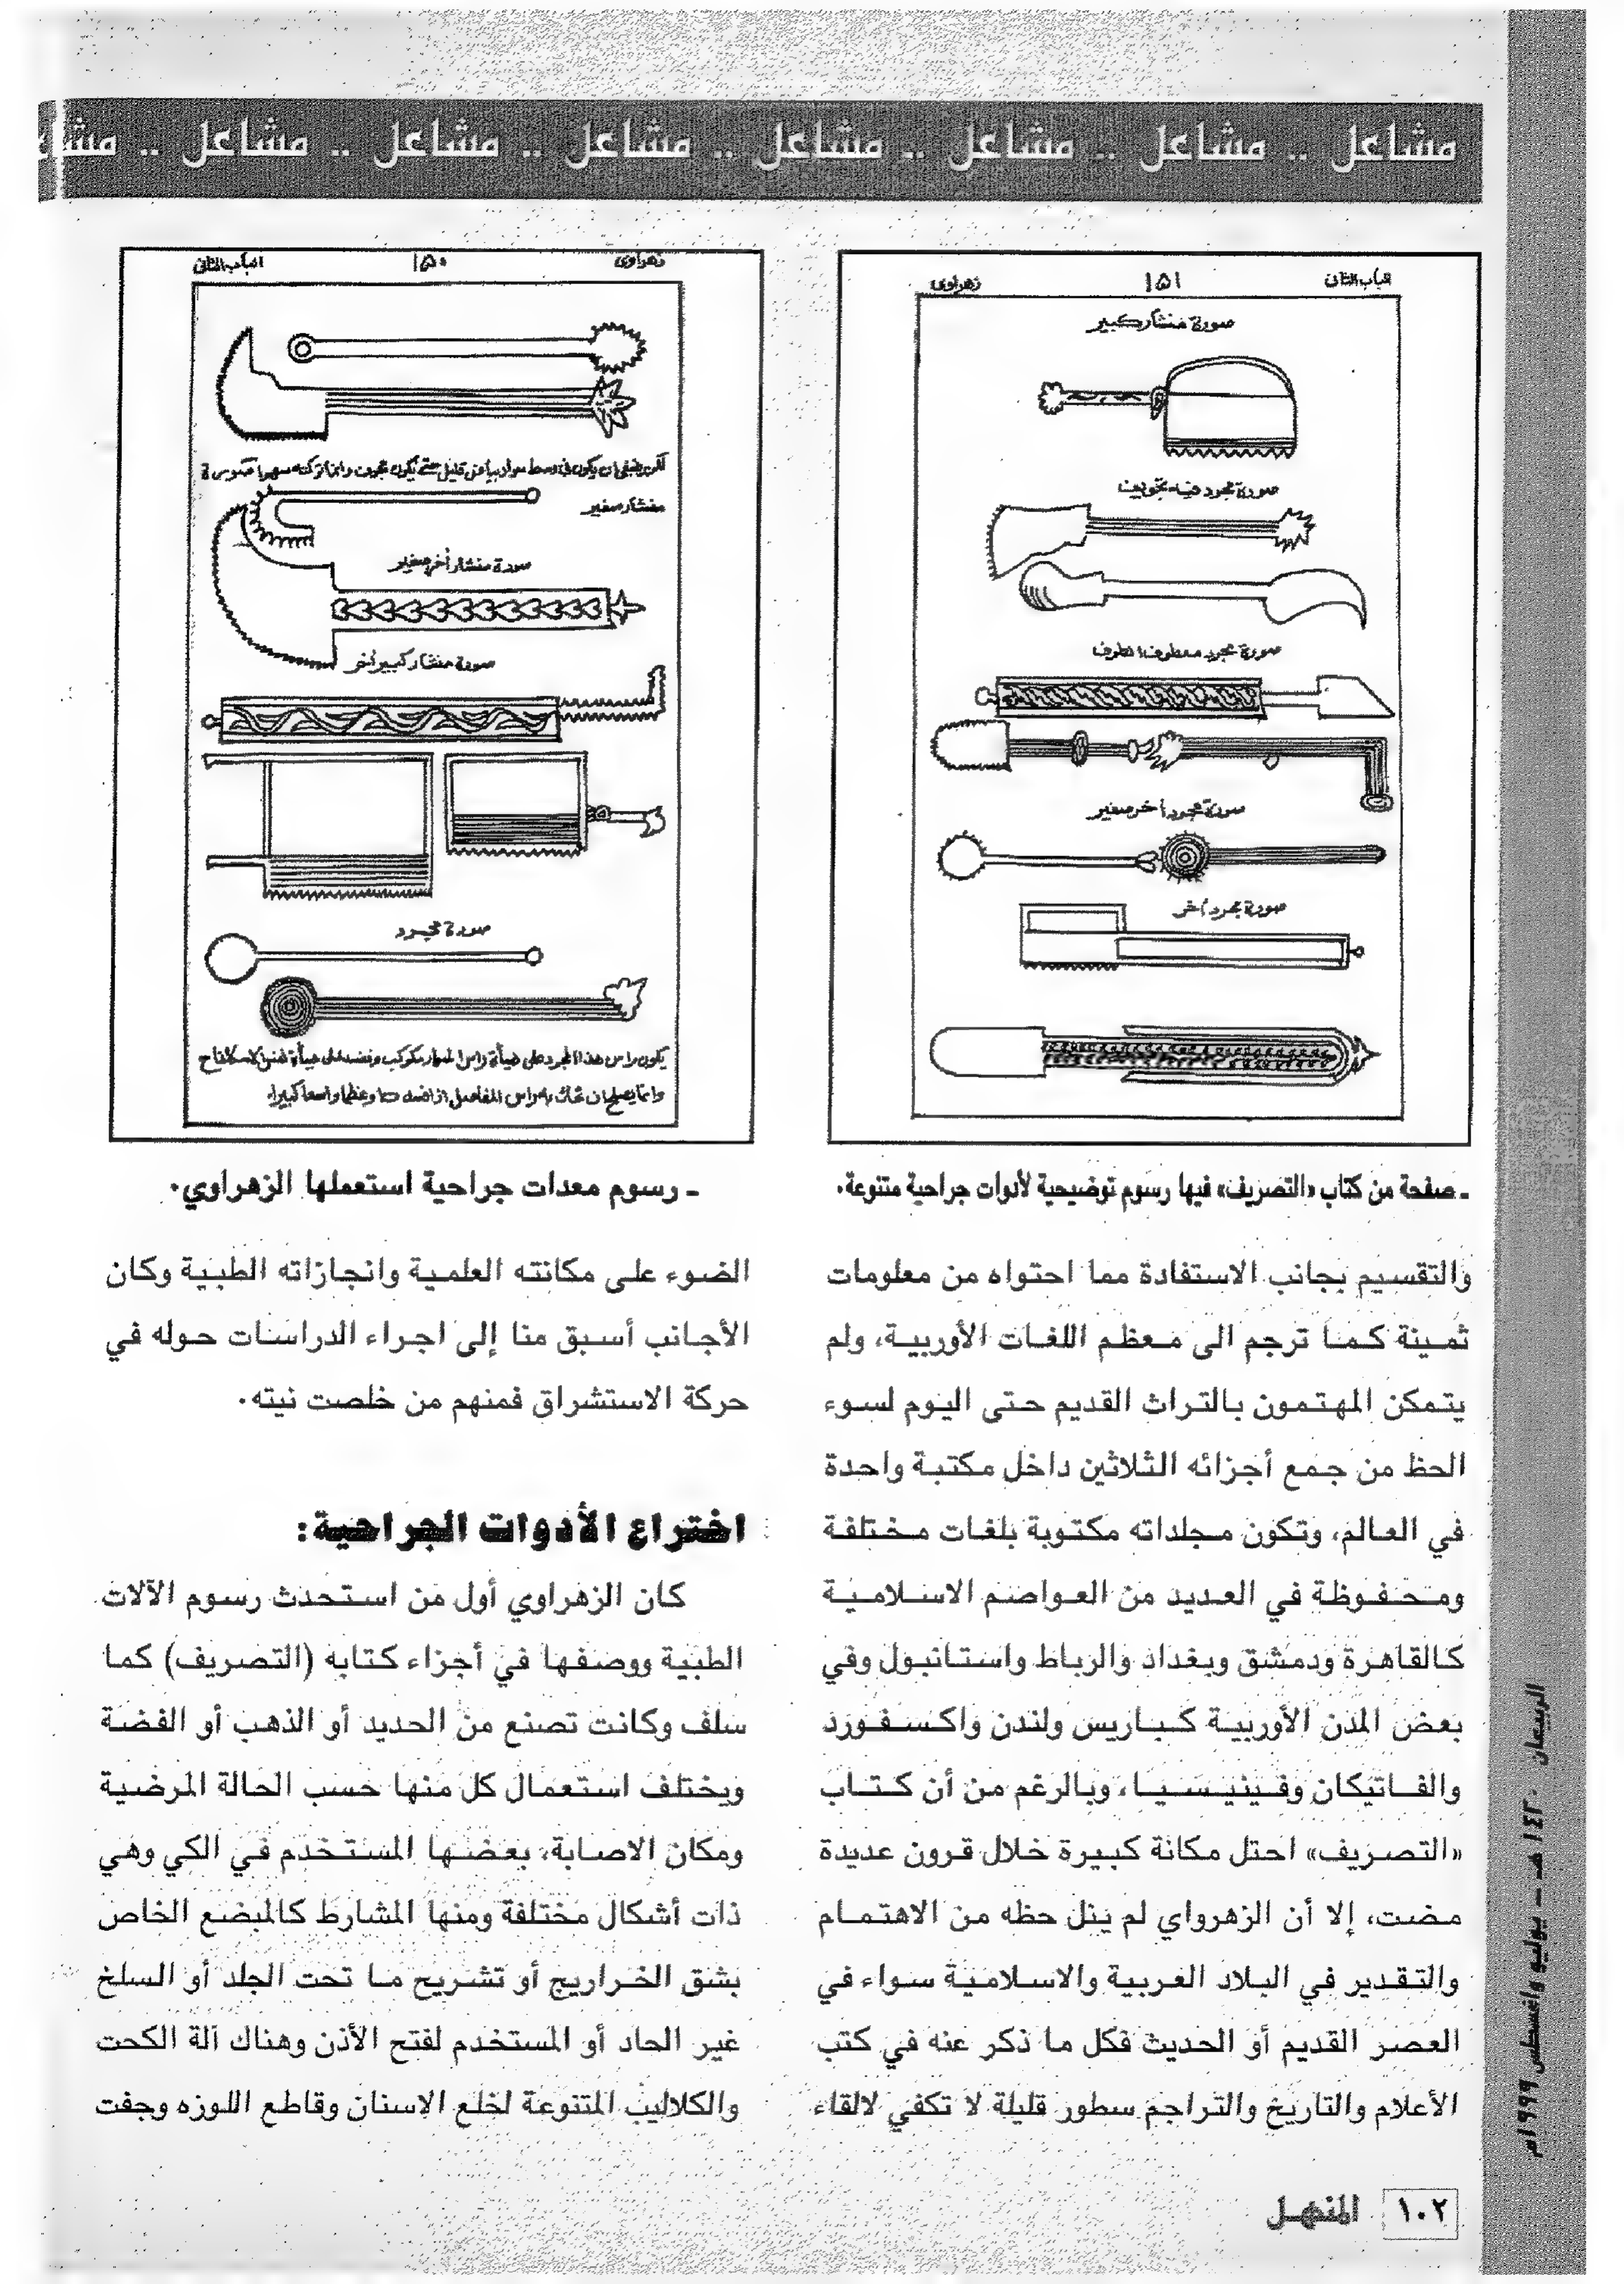 مشاعل .. مشاعل .. مشاعل .. مشاعل .. مشاعل .. مشاعل .. مشاعل .. مشا
الباب الثاني ١٥١ زهراوى
صورة منشار كبير
صورة مجرد فيه تجويف
صورة مجرد معطوف الطرف
صورة مجرد أخر صغير
صورة مجرد أخر
ـ صفحة من كتاب «التصريف» فيها رسوم توضيحية لأدوات جراحية متنوعة.
زهراوى ١٥٠ الباب الثاني
منشار صغير
صورة منشار أخر صغير
صورة منشار كبير أخر
صورة مجرد
يكون راس هذا المجرد على هيأة راس
ـ رسوم معدات جراحية استعملها الزهراوي.
والتقسيم بجانب الاستفادة مما احتواه من معلومات
ثمينة كما ترجم الى معظم اللغات الأوربية، ولم
يتمكن المهتمون بالتراث القديم حتى اليوم لسوء
الحظ من جمع أجزائه الثلاثين داخل مكتبة واحدة
في العالم، وتكون مجلداته مكتوبة بلغات مختلفة
ومحفوظة في العديد من العواصم الاسلامية
كالقاهرة ودمشق وبغداد والرباط واستانبول وفي
بعض المدن الأوربية كباريس ولندن واكسفورد
والفاتيكان وفينيسيا، وبالرغم من أن كتاب
«التصريف» احتل مكانة كبيرة خلال قرون عديدة
مضت، إلا أن الزهرواي لم ينل حظه من الاهتمام
والتقدير في البلاد العربية والاسلامية سواء في
العصر القديم أو الحديث فكل ما ذكر عنه في كتب
الأعلام والتاريخ والتراجم سطور قليلة لا تكفي لالقاء
الضوء على مكانته العلمية وانجازاته الطبية وكان
الأجانب أسبق منا إلى اجراء الدراسات حوله في
حركة الاستشراق فمنهم من خلصت نيته.
اختراع الأدوات الجراحية:
كان الزهراوي أول من استحدث رسوم الآلات
الطبية ووصفها في أجزاء كتابه (التصريف) كما
سلف وكانت تصنع من الحديد أو الذهب أو الفضة
ويختلف استعمال كل منها حسب الحالة المرضية
ومكان الاصابة، بعضها المستخدم في الكي وهي
ذات أشكال مختلفة ومنها المشارط كالمبضع الخاص
بشق الخراريج أو تشريح ما تحت الجلد أو السلخ
غير الحاد أو المستخدم لفتح الأذن وهناك آلة الكحت
والكلاليب المتنوعة لخلع الاسنان وقاطع اللوزه وجفت
الربيعان ١٤٢٠هـ ـ يوليو وأغسطس ١٩٩٩م
١٠٢ المنهل